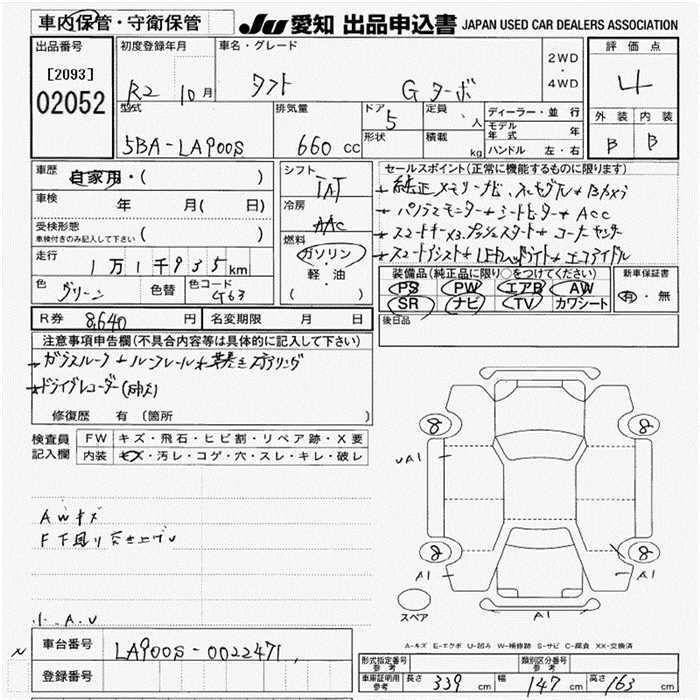 車内保管・守衛保管
JU 愛知 出品申込書 JAPAN USED CAR DEALERS ASSOCIATION
出品番号 [2093] 02052
初度登録年月 R2 10月
車名・グレード タフト Gターボ
2WD・4WD
評価点 4
外装 B 内装 B
型式 5BA-LA900S
排気量 660 cc
ドア 5 形状
定員 人 積載 kg
ディーラー・並行
モデル年式 年
ハンドル 左・右
車歴 自家用・( )
車検 年 月( 日)
受検形態 車検付きのみ記入して下さい ( )
走行 1万1千935km
色 グリーン 色替 色コード G63
シフト IAT
冷房 AAC
燃料 ガソリン・軽・油 ( )
セールスポイント(正常に機能するものに限ります)
純正メモリーナビ
パノラマモニター+シートヒーター+ACC
スマートキーx3 プッシュスタート+コーナーセンサー
スマートアシスト+LEDヘッドライト+エコアイドル
装備品(純正品に限り○をつけてください)
PS PW エアB AW
SR ナビ TV カワシート
新車保証書 有・無
後日品
R券 8,640 円
名変期限 月 日
注意事項申告欄(不具合内容等は具体的に記入して下さい)
ガラスルーフ+ルーフレール+革巻きステアリング
+ドライブレコーダー
修復歴 有 (箇所 )
検査員記入欄
FW キズ・飛石・ヒビ割・リペア跡・X要
内装 キズ・汚レ・コゲ・穴・スレ・キレ・破レ
AWキズ
F下廻り
小A.U
8 8
UA1
8 8
A1 A1
A1
スペア
A-キズ E-エクボ U-凹み W-補修跡 S-サビ C-腐食 XX-交換済
車台番号 LA900S-0022471
登録番号
型式指定番号 参考 類別区分番号 参考
車庫証明用 参考 長さ 339 cm 幅 147 cm 高さ 163 cm